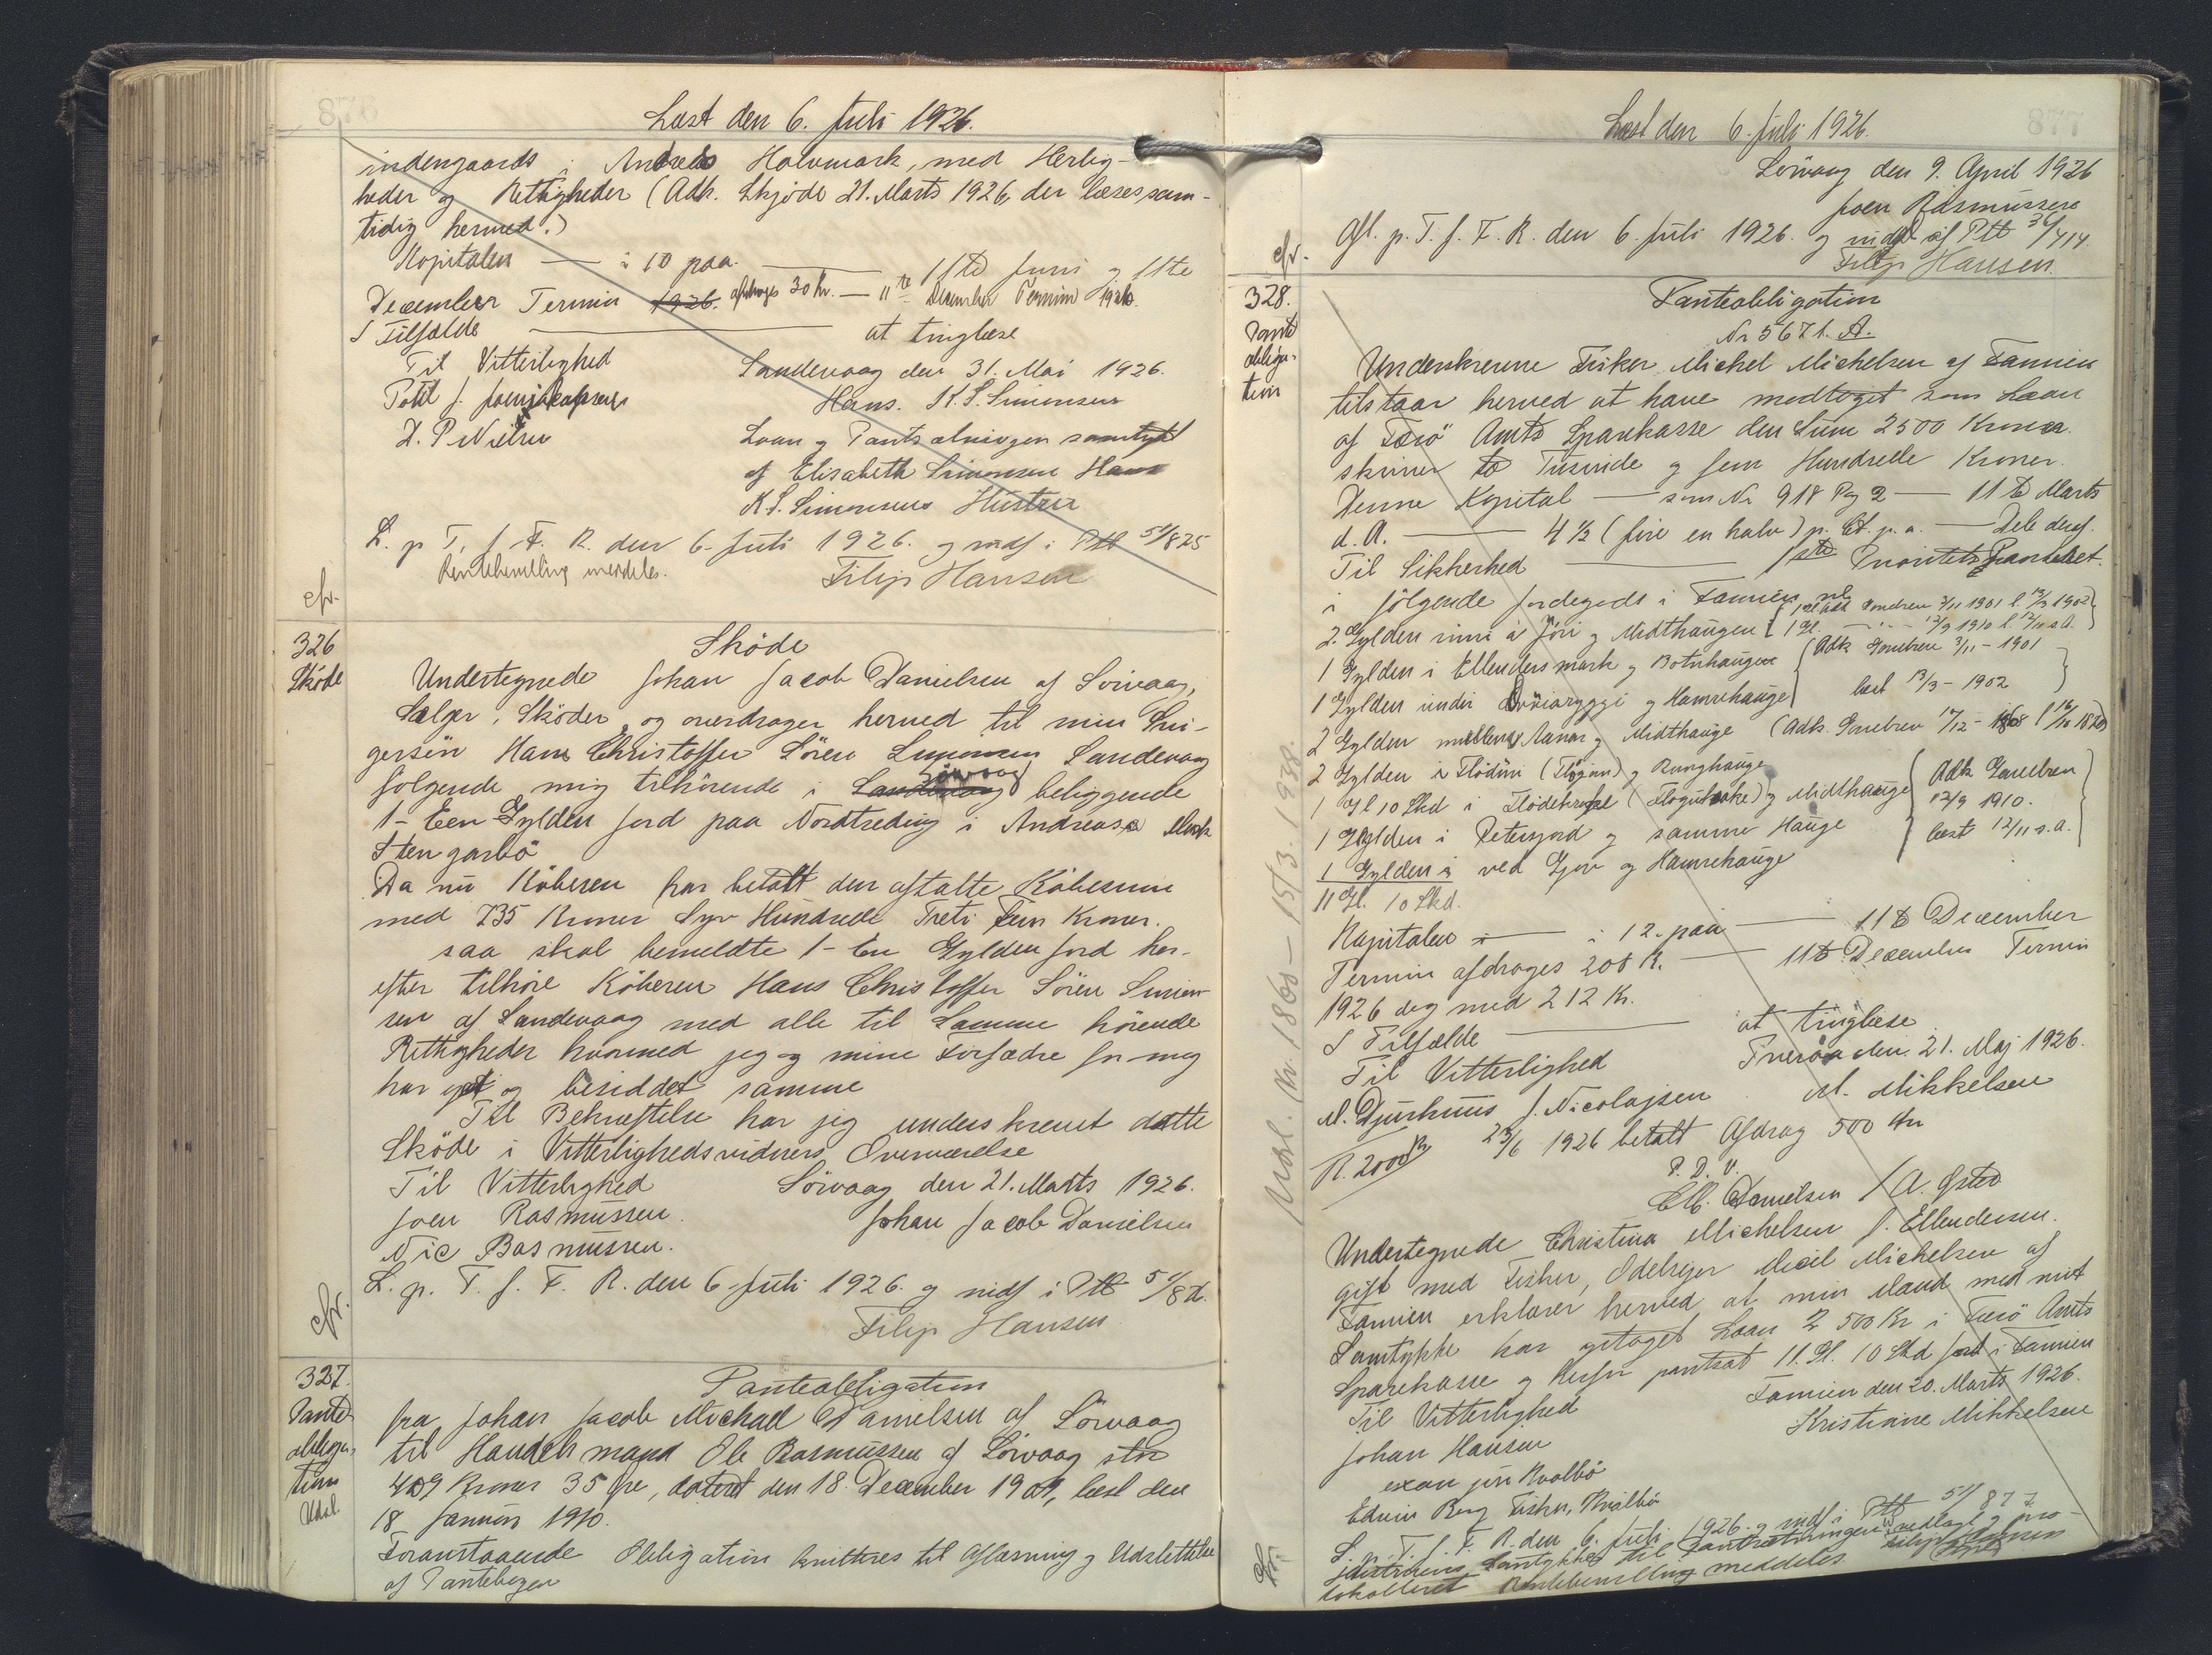 876
Læst den 6. Juli 1926.
indengaards i Andreas Halvmark, med Herlig-
heder og Rettigheder (Adk. Skjøde 21. Marts 1926, der læses sam-
tidig hermed.)
Kapitalen — i 10 paa — 11te Juni og 11te
December Termin 1926. afdrages 30 Kr. — 11te December Termin 1926.
I Tilfælde — at tinglæse
Til Vitterlighed Sandevaag den 31. Mai 1926.
Potl J. Hans. K. S. Simonsen
D. P. Nielsen Laan og Pantsætningen samtykt
af Elisabeth Simonsen Hans
K. S. Simonsens Hustru
L. p. T. f. F. R. den 6. Juli 1926. og indf i Ptb 51/825
Rentebevilling meddeles. Filip Hansen
cfr.
326
Sköde
Sköde
Undertegnede Johan Jacob Danielsen af Sörvaag,
Sælger, Sköder og overdrager herved til min Svi-
gersön Hans Christoffer Sören Simonsen Sandevaag
følgende mig tilhörende i Sandevaag Sörvaag beliggende
1- Een Gylden Jord paa Nordtreding i Andreasa Mark
Stengarbö
Da nu Köberen har betalt den aftalte Köbesum
med 735 Kroner Syv Hundrede Treti Fem Kroner.
saa skal bemeldte 1- En Gylden Jord her-
efter tilhöre Köberen Hans Christoffer Sören Simon-
sen af Sandevaag med alle til Samme hörende
Rettigheder hvormed jeg og mine Forfædre för mig
har ejet og besiddet samme
Til Bekræftelse har jeg underskrevet dette
Sköde i Vitterlighedsvidners Overværelse
Til Vitterlighed Sörvaag den 21. Marts 1926.
Joen Rasmussen. Johan Jacob Danielsen
Nic Rasmussen.
L. p. T. f. F. R. den 6. Juli 1926. og indf i Ptb 51/82.
Filip Hansen
cfr.
327.
Pante
obliga-
tion
Udsl
Panteobligation
fra Johan Jacob Michael Danielsen af Sörvaag
til Handelsmand Ole Rasmussen af Sörvaag stor
409 Kroner 35 Øre, dateret den 18. December 1909, læst den
18 Januar 1910.
Foranstaaende Obligation kvitteres til Aflæsning og Udslettelse
af Pantebogen
877
Læst den 6. Juli 1926.
Sörvaag den 9. April 1926
Joen Rasmussen
Afl. p. T. f. F. R. den 6. Juli 1926. og udsl af Ptb 36/414.
Filip Hansen.
cfr.
328.
Pante
obliga-
tion
Panteobligation
Nr 5671. A.
Underskrevne Fisker Michel Michelsen af Famien
tilstaar herved at have modtaget som Laan
af Færö Amts Sparekasse den Sum 2500 Kroner
skriver to Tusinde og fem Hundrede Kroner.
Denne Kapital — som Nr 918 Pag 2 — 11te Marts
d. A. — 4 ½ (fire en halv) p. Ct. p. a. — Dele deraf.
Til Sikkerhed — 1ste Prioritets Panteret.
i følgende Jordegods i Famien nl
2. Gylden inni á Jöri og Midthaugen { 1 Gl. Adk Gavebrev 3/11 1901 l. 13/3 1902 } { 1 Gl. — " — 12/9 1910 l. 12/11 s.A. }
1 Gylden i Ellendersmark og Botnhaugen { Adk Gavebrev 3/11 - 1901
1 Gylden undir Dröiaryggi og Hamrehauge } læst 13/3 - 1902
2 Gylden millum Aanar og Midthauge (Adk. Gavebrev 17/12 - 1868
2 Gylden i Flödini (Flögini) og Runghauge
1 Gl 10 Skd i Og Midthauge { Adk Gavebrev
1 Gylden i Petersjord og samme Hauge 12/9 1910.
1 Gylden á ved Gjov og Hamrehauge læst 12/11 s.A. }
11 Gl. 10 Skd.
Kapitalen — i 12. paa — 11te December
Termin afdrages 208 K. — 11te December Termin
1926 dog med 212 Kr.
I Tilfælde — at tinglæse
Til Vitterlighed Tveröa den 21. Maj 1926.
M. Djurhuus J. Nicolajsen M. Mikkelsen
R. 2000 Kr 23/6 1926 betalt Afdrag 500 Kr
P. D. V.
Chr. Danielsen / A. Ysted
Undertegnede Christina Michelsen f. Ellendersen.
gift med Fisker, Odelsejer Micel Michelsen af
Famien erklærer herved, at min Mand med mit
Samtykke har optaget Laan 2 500 Kr i Færö Amts
Sparekasse og herfor pantsat 11. Gl. 10 Skd Jord i Famien
Til Vitterlighed Famien den 20. Marts 1926.
Johan Hansen Kristinne Mikkelsen
Kvalbö
Edvin Berg Fisker, Kvalbö
L. p. T. f. F. R. den 6. Juli 1926. og indf i Ptb 51/877
Hustruens Samtykke til Pantsætningen
Rentebevilling meddeles Filip Hansen
cfr.
Udsl. Nr. 1860 — 15/3. 1938.